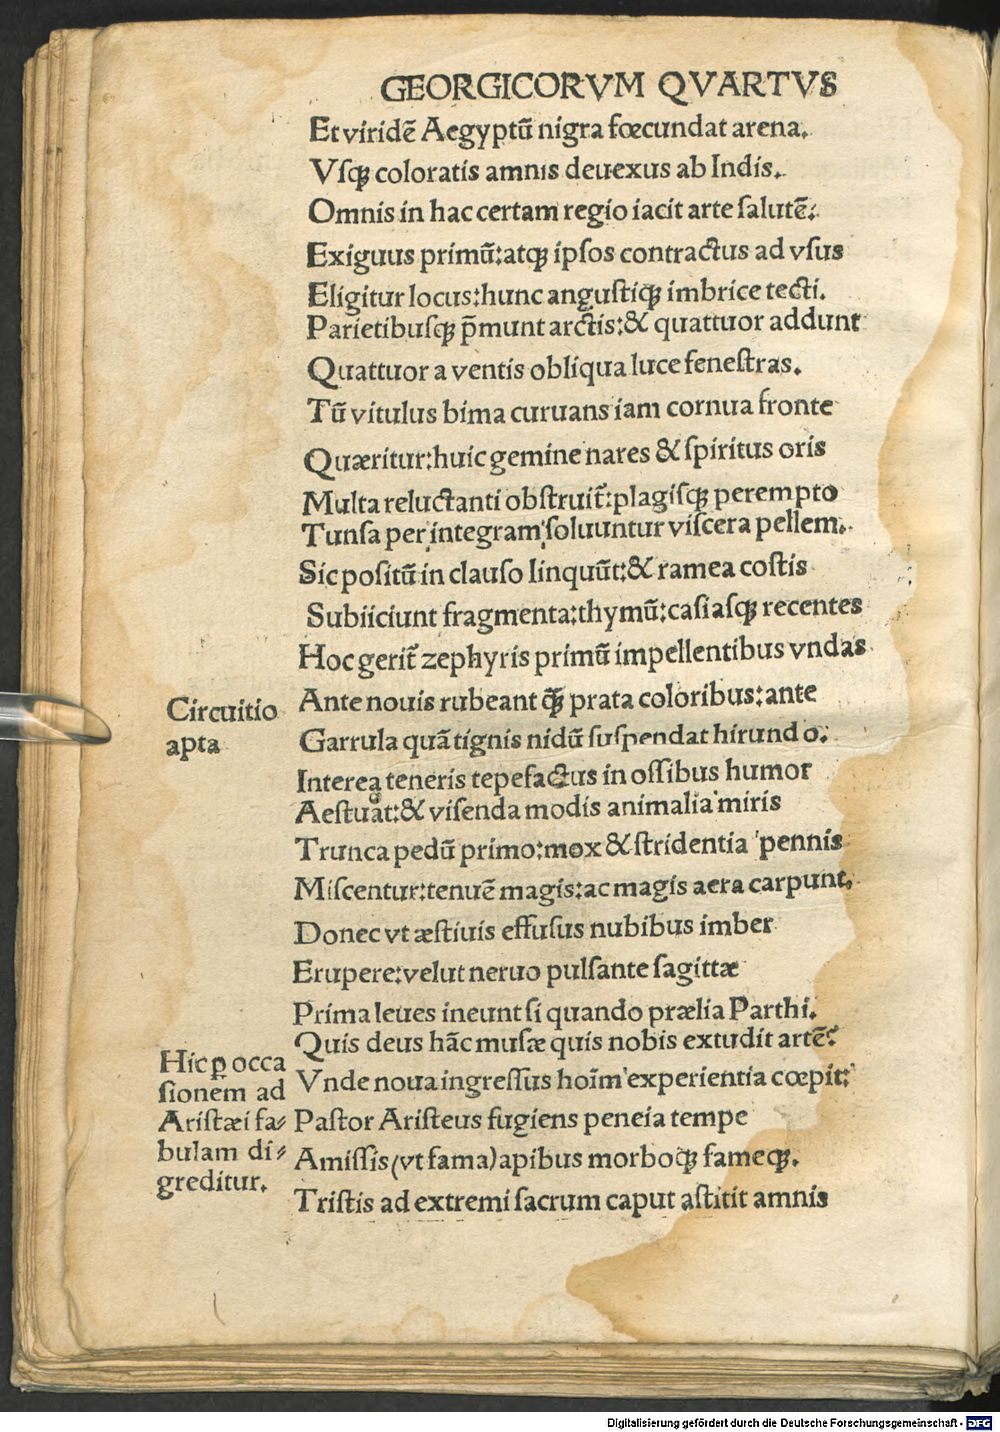 GEORGICORVM QVARTVS
Et viridē Aegyptū nigra fœcundat arena.
Vſqꝫ coloratis amnis deuexus ab Indis.
Omnis in hac certam regio iacit arte ſalutē:
Exiguus primū: atqꝫ ipſos contractus ad vſus
Eligitur locus: hunc anguſtiqꝫ imbrice tecti.
Parietibuſqꝫ p̄munt arctis: & quattuor addunt
Quattuor a ventis obliqua luce feneſtras.
Tū vitulus bima curuans iam cornua fronte
Quæritur: huic gemine nares & ſpiritus oris
Multa reluctanti obſtruit᷑: plagiſqꝫ perempto
Tunſa per integram ſoluuntur viſcera pellem.
Sic poſitū in clauſo linquūt: & ramea coſtis
Subiiciunt fragmenta: thymū: caſiaſqꝫ recentes
Hoc gerit᷑ zephyris primū impellentibus vndas
Circuitio
apta
Ante nouis rubeant qꝫ̄ prata coloribus: ante
Garrula quā tignis nidū ſuſpendat hirundo:
Interea teneris tepefactus in oſſibus humor
Aeſtuat: & viſenda modis animalia miris
Trunca pedū primo: mox & ſtridentia pennis
Miſcentur: tenuē magis: ac magis aera carpunt.
Donec vt æſtiuis effuſus nubibus imber
Erupere: velut neruo pulſante ſagittæ
Prima leues ineunt ſi quando prælia Parthi.
Quis deus hāc muſæ quis nobis extudit artē?
Vnde noua ingreſſus hoīm experientia cœpit:
Hic ꝑ occa
ſionem ad
Ariſtæi fa⸗
bulam di⸗
greditur.
Paſtor Ariſteus fugiens peneia tempe
Amiſſis (vt fama) apibus morboqꝫ fameqꝫ.
Triſtis ad extremi ſacrum caput aſtitit amnis
Digitalisierung gefördert durch die Deutsche Forschungsgemeinschaft - DFG